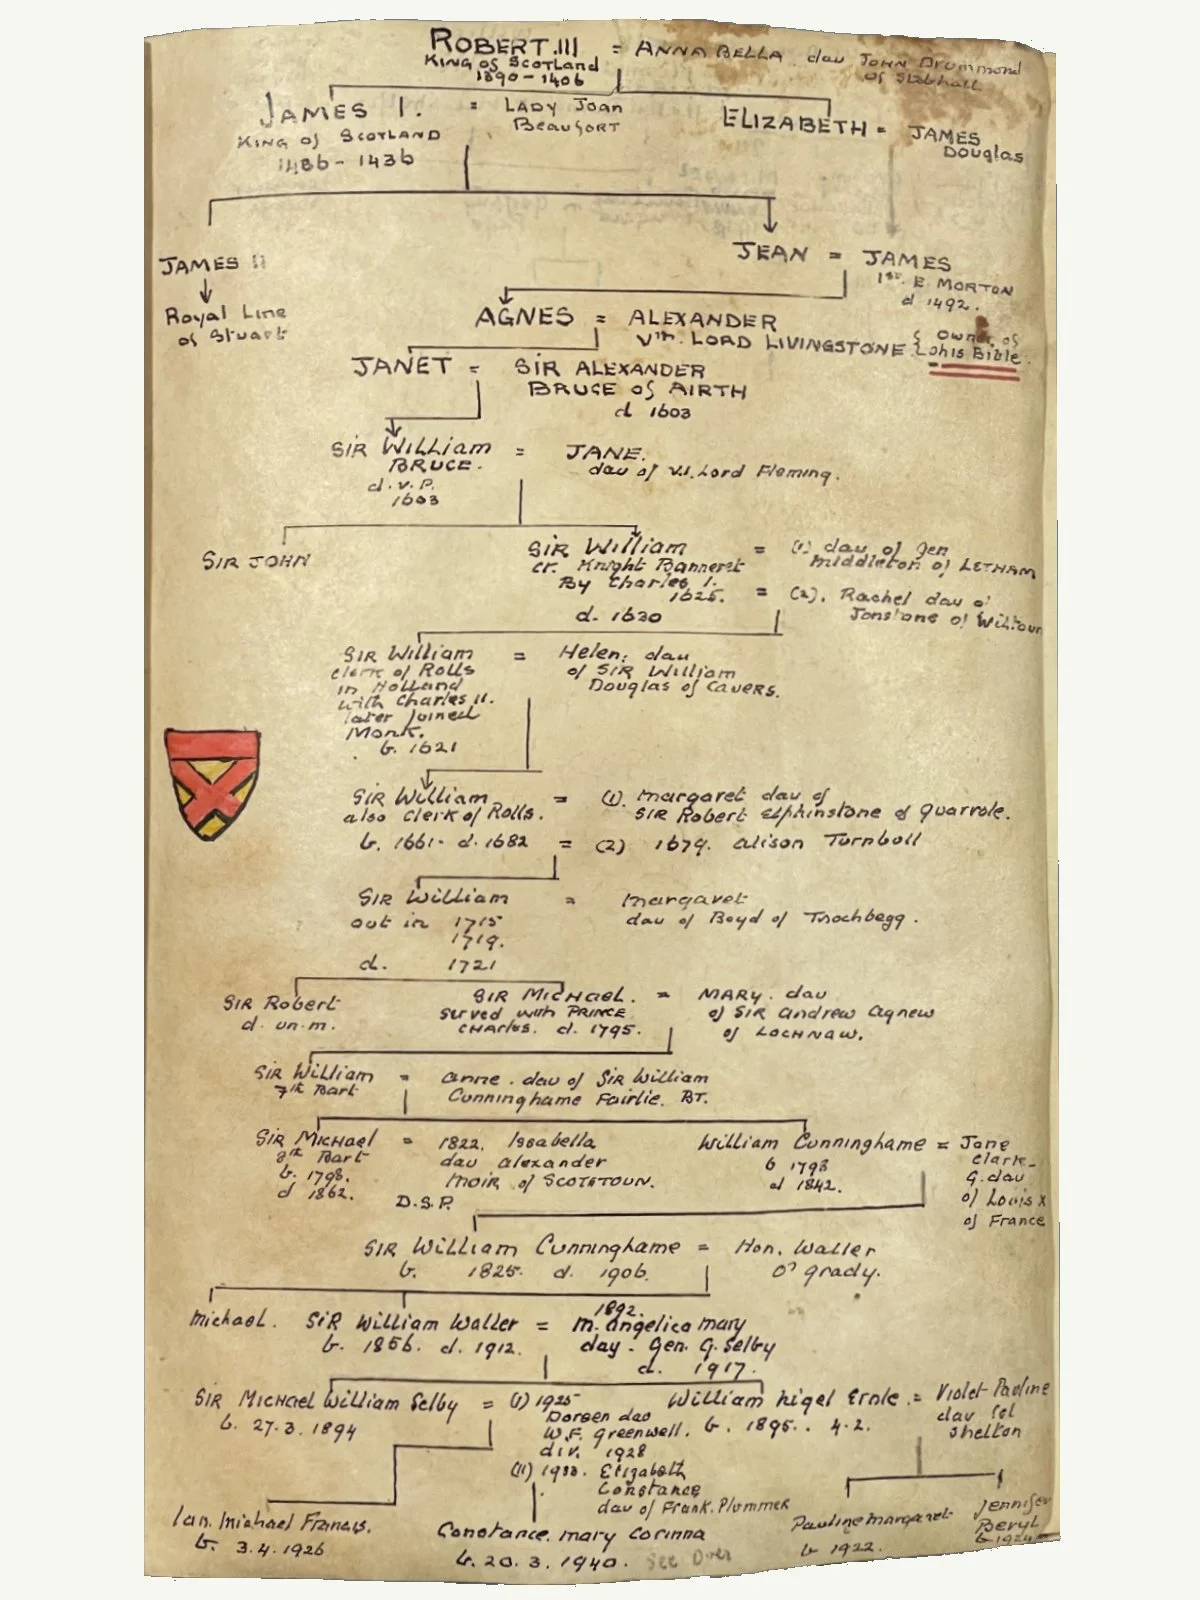 ROBERT III = ANNABELLA dau JOHN Drummond
KING of SCOTLAND of Stobhall
1390 - 1406
JAMES I. = LADY Joan ELIZABETH = JAMES
KING of SCOTLAND Beaufort Douglas
1436 - 1436
JAMES II JEAN = JAMES
1st E MORTON
d 1492.
Royal Line
of Stuart
AGNES = ALEXANDER
Vth LORD LIVINGSTONE { owner of
this Bible
JANET = SIR ALEXANDER
BRUCE of AIRTH
d 1603
SIR William = JANE.
BRUCE. dau of VI. Lord Fleming.
d.v.P.
1603
SIR JOHN SIR William = (1) dau of Gen
cr. Knight Banneret Middleton of LETHAM
By Charles I.
1625. = (2). Rachel dau of
d. 1630 Jonstone of
SIR William = Helen, dau
clerk of Rolls of SIR William
in Holland Douglas of Cavers.
with Charles II.
later joined
Monk.
b. 1621
SIR William = (1). Margaret dau of
also clerk of Rolls. SIR Robert Elphinstone of Quarrole.
b. 1661 - d. 1682 = (2) 1679. Alison Turnboll
SIR William = Margaret
out in 1715 dau of Boyd of Trochbegg.
1719.
d. 1721
SIR Robert SIR MICHAEL. = MARY. dau
d. un.m. served with PRINCE of SIR Andrew Agnew
CHARLES. d. 1795. of LOCHNAW.
SIR William = Anne. dau of SIR William
7th Bart Cunninghame Fairlie. BT.
SIR MICHAEL = 1822. Issabella William Cunninghame = Jane
8th Bart dau Alexander b 1793 Clark
b. 1798. MOIR of SCOTSTOUN. d 1842. G. dau
d 1862. D.S.P. of Louis X
of France
SIR William Cunninghame = Hon. Waller
b. 1825. d. 1906. O'Grady.
Michael. SIR William Waller = 1892.
m. Angelica Mary
b. 1856. d. 1912. day. Gen. G. Selby
d. 1917.
SIR MICHAEL William Selby = (I) 1925 William Nigel Ernle = Violet Pauline
b. 27.3.1894 Doreen dau b. 1895.. 4.2. dau Col
W.F. Greenwell. Shelton
div. 1928
(II) Elizabeth
Constance
dau of Frank. Plummer
Ian. Michael Francis. Constance. Mary Corinna Pauline Margaret Jennifer
b. 3.4.1926 b. 20.3.1940. See Over b 1922. Beryl